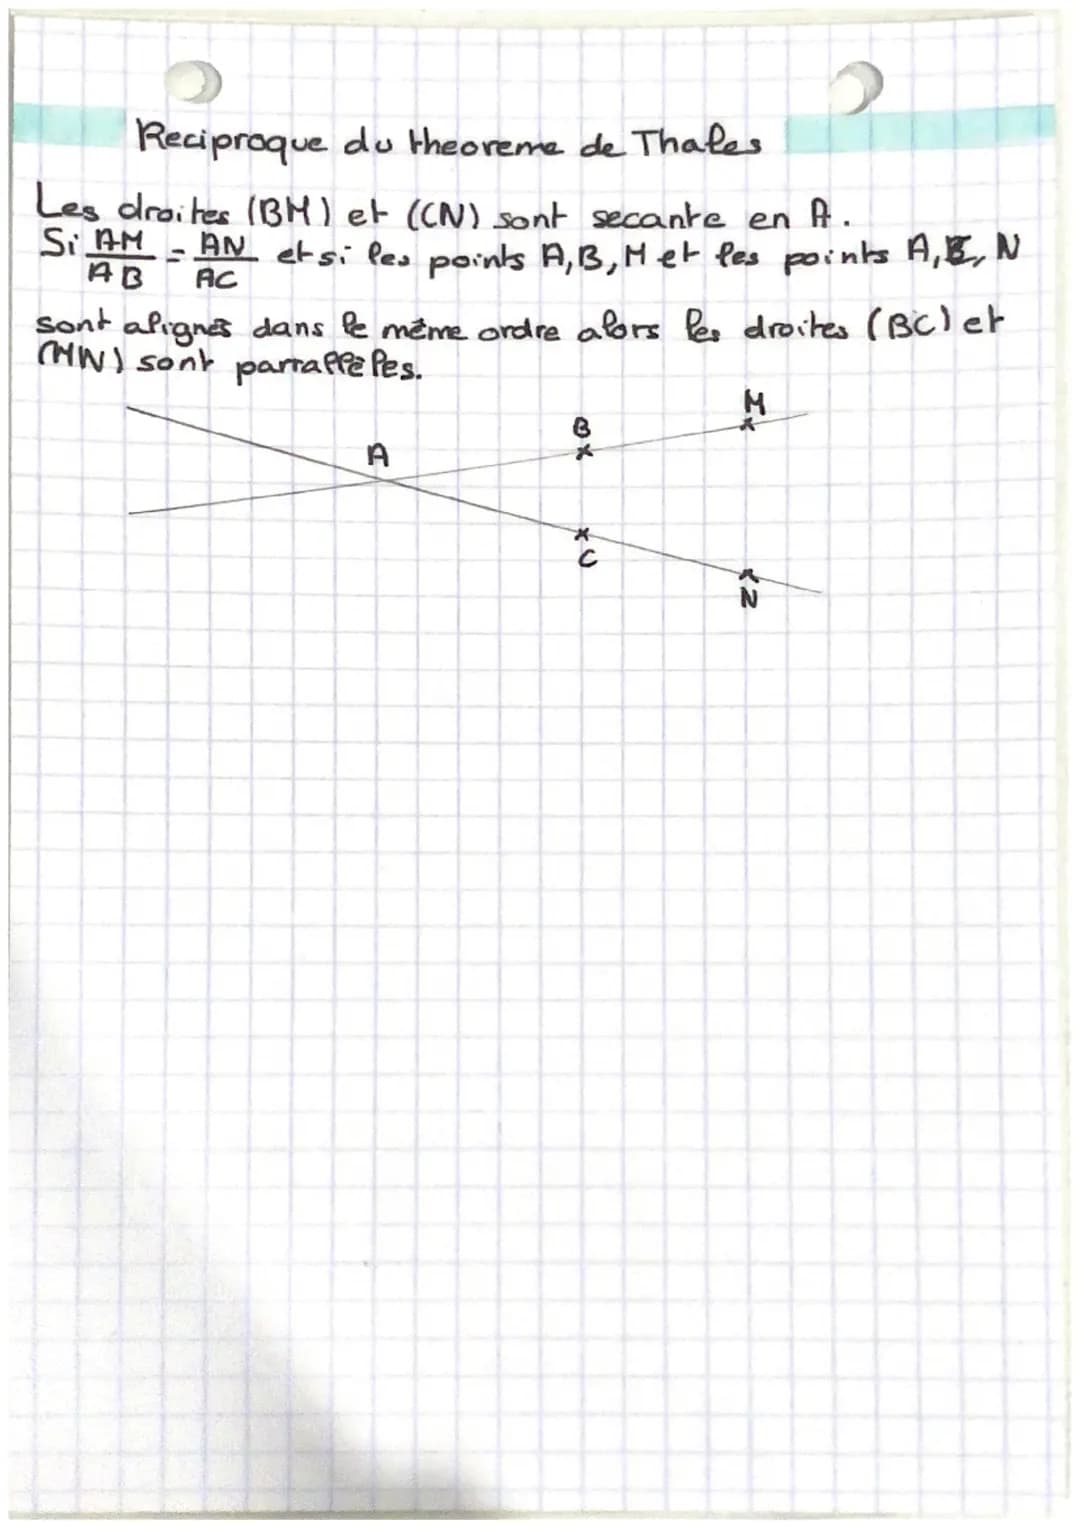 Reciproque du theoreme de Thales
Les droites (BM) et (CN) sont secante en A.
Si AM/AB = AN/AC et si les points A, B, M et les points A, C, N
sont alignés dans le même ordre alors les droites (BC) et
(MN) sont parrallèles.
M
B
A
C
N